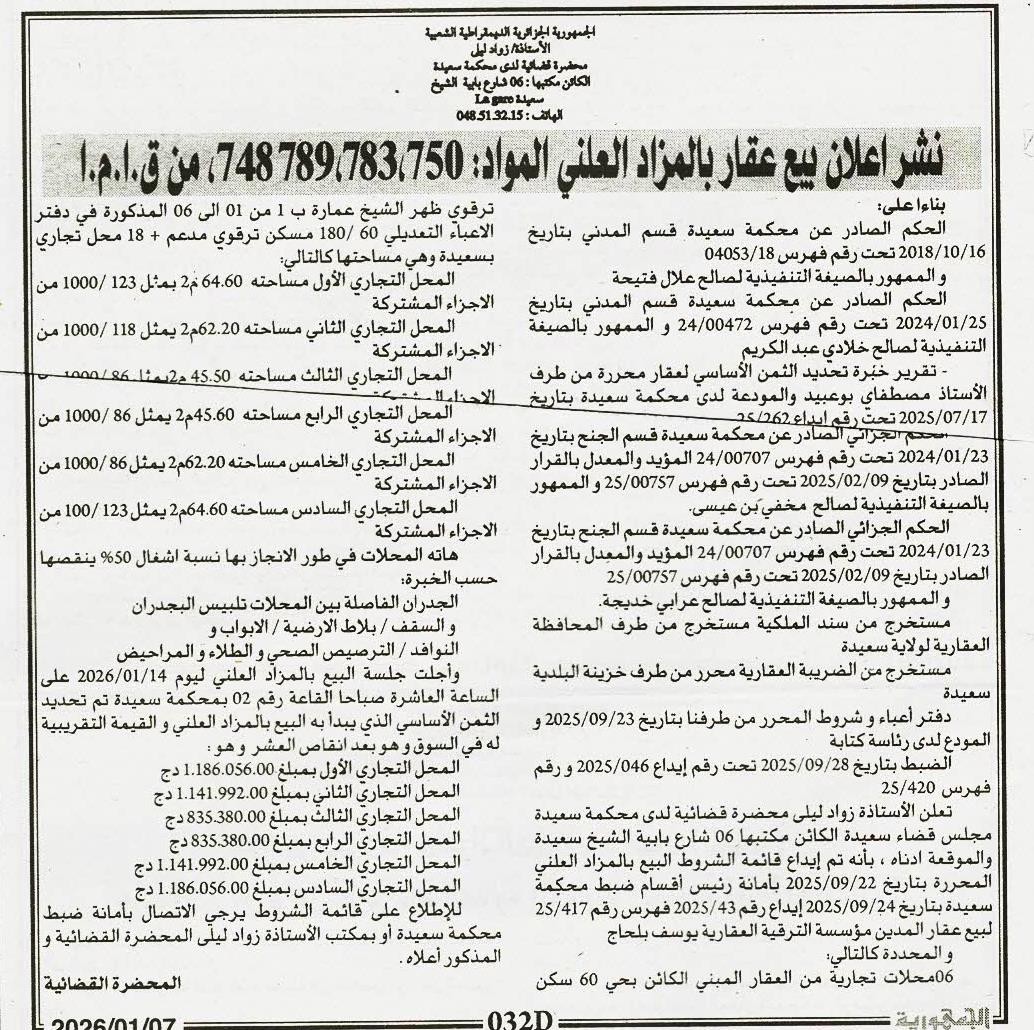 الجمهورية الجزائرية الديمقراطية الشعبية
الأستاذة/ زواد ليلى
محضرة قضائية لدى محكمة سعيدة
الكائن مكتبها : 06 شارع بابية الشيخ
سعيدة La gare
الهاتف : 048.51.32.15
نشر اعلان بيع عقار بالمزاد العلني المواد: 750،783،789 748، من ق.ا.م.ا
بناءا على:
الحكم الصادر عن محكمة سعيدة قسم المدني بتاريخ
2018/10/16 تحت رقم فهرس 04053/18
و الممهور بالصيغة التنفيذية لصالح علال فتيحة
الحكم الصادر عن محكمة سعيدة قسم المدني بتاريخ
2024/01/25 تحت رقم فهرس 24/00472 و الممهور بالصيغة
التنفيذية لصالح خلادي عبد الكريم
- تقرير خبرة تحديد الثمن الأساسي لعقار محررة من طرف
الأستاذ مصطفاي بوعبيد والمودعة لدى محكمة سعيدة بتاريخ
2025/07/17 تحت رقم إيداع 25/262
الحكم الجزائي الصادر عن محكمة سعيدة قسم الجنح بتاريخ
2024/01/23 تحت رقم فهرس 24/00707 المؤيد والمعدل بالقرار
الصادر بتاريخ 2025/02/09 تحت رقم فهرس 25/00757 و الممهور
بالصيغة التنفيذية لصالح مخفي بن عيسى.
الحكم الجزائي الصادر عن محكمة سعيدة قسم الجنح بتاريخ
2024/01/23 تحت رقم فهرس 24/00707 المؤيد والمعدل بالقرار
الصادر بتاريخ 2025/02/09 تحت رقم فهرس 25/00757
و الممهور بالصيغة التنفيذية لصالح عرابي خديجة.
مستخرج من سند الملكية مستخرج من طرف المحافظة
العقارية لولاية سعيدة
مستخرج من الضريبة العقارية محرر من طرف خزينة البلدية
سعيدة
دفتر أعباء و شروط المحرر من طرفنا بتاريخ 2025/09/23 و
المودع لدى رئاسة كتابة
الضبط بتاريخ 2025/09/28 تحت رقم إيداع 2025/046 و رقم
فهرس 25/420
تعلن الأستاذة زواد ليلى محضرة قضائية لدى محكمة سعيدة
مجلس قضاء سعيدة الكائن مكتبها 06 شارع بابية الشيخ سعيدة
والموقعة ادناه ، بأنه تم إيداع قائمة الشروط البيع بالمزاد العلني
المحررة بتاريخ 2025/09/22 بأمانة رئيس أقسام ضبط محكمة
سعيدة بتاريخ 2025/09/24 إيداع رقم 2025/43 فهرس رقم 25/417
لبيع عقار المدين مؤسسة الترقية العقارية يوسف بلحاج
و المحددة كالتالي:
06محلات تجارية من العقار المبني الكائن بحي 60 سكن
ترقوي ظهر الشيخ عمارة ب 1 من 01 الى 06 المذكورة في دفتر
الاعباء التعديلي 60 /180 مسكن ترقوي مدعم + 18 محل تجاري
بسعيدة وهي مساحتها كالتالي:
المحل التجاري الأول مساحته 64.60 م2 بمثل 123 /1000 من
الاجزاء المشتركة
المحل التجاري الثاني مساحته 62.20م2 يمثل 118 /1000 من
الاجزاء المشتركة
المحل التجاري الثالث مساحته 45.50 م2يمثل 86 /1000 من
الاجزاء المشتركة
المحل التجاري الرابع مساحته 45.60م2 يمثل 86 /1000 من
الاجزاء المشتركة
المحل التجاري الخامس مساحته 62.20م2 يمثل 86 /1000 من
الاجزاء المشتركة
المحل التجاري السادس مساحته 64.60م2 يمثل 123 /100 من
الاجزاء المشتركة
هاته المحلات في طور الانجاز بها نسبة اشغال 50% ينقصها
حسب الخبرة:
الجدران الفاصلة بين المحلات تلبيس البجدران
و السقف / بلاط الارضية / الابواب و
النوافد / الترصيص الصحي و الطلاء و المراحيض
وأجلت جلسة البيع بالمزاد العلني ليوم 2026/01/14 على
الساعة العاشرة صباحا القاعة رقم 02 بمحكمة سعيدة تم تحديد
الثمن الأساسي الذي يبدأ به البيع بالمزاد العلني و القيمة التقريبية
له في السوق و هو بعد انقاص العشر و هو :
المحل التجاري الأول بمبلغ 1.186.056.00 دج
المحل التجاري الثاني بمبلغ 1.141.992.00 دج
المحل التجاري الثالث بمبلغ 835.380.00 دج
المحل التجاري الرابع بمبلغ 835.380.00 دج
المحل التجاري الخامس بمبلغ 1.141.992.00 دج
المحل التجاري السادس بمبلغ 1.186.056.00 دج
للإطلاع على قائمة الشروط يرجي الاتصال بأمانة ضبط
محكمة سعيدة أو بمكتب الأستاذة زواد ليلى المحضرة القضائية و
المذكور أعلاه .
المحضرة القضائية
الجمهورية
032D
2026/01/07